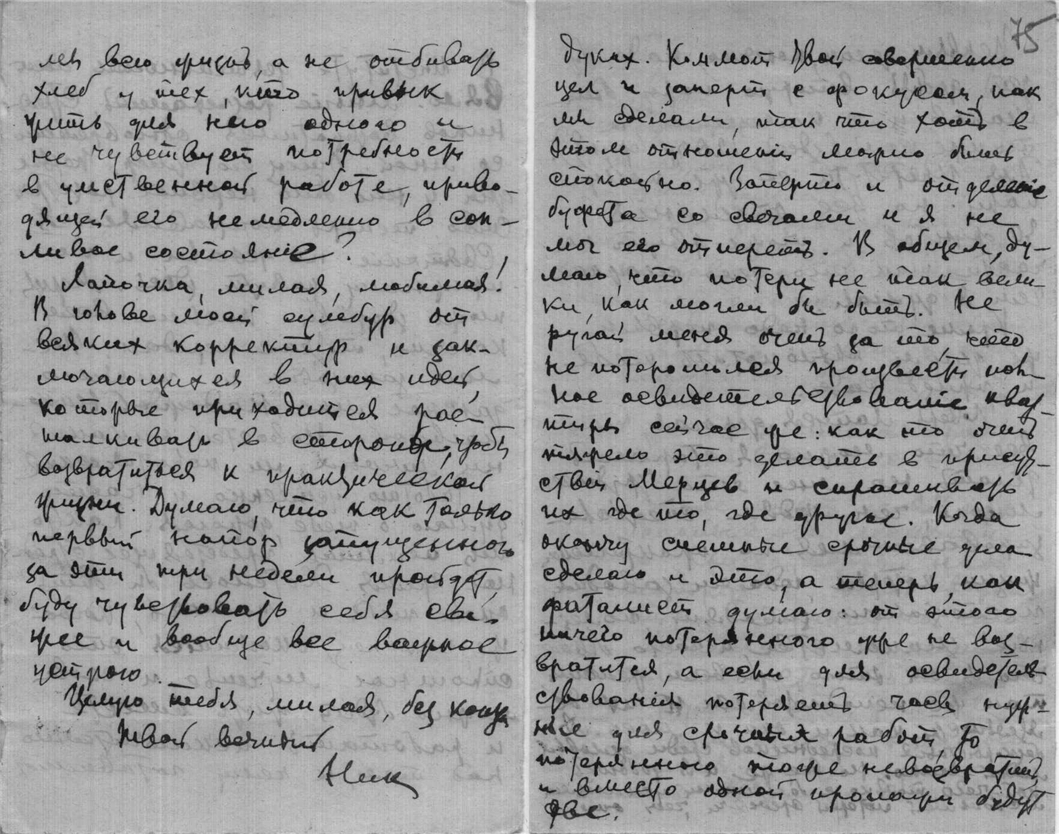 лей всею жизнь, а не отбивать
хлеб у тех, кто привык
жить для него одного и
не чувствует потребности
в умственной работе, приво-
дящей его немедленно в сон-
ливое состояние?
Лапочка, милая, любимая!
В голове моей сумбур от
всяких корректур и зак-
лючающихся в них идей,
которые приходится рас-
талкивать в стороны, чтобы
возвратиться к практической
жизни. Думаю, что как только
первый напор запущенного
за эти три недели пройдет,
буду чувствовать себя све-
жее и вообще все важное
устрою.
Целую тебя, милая, без конца
Твой
Ник
75
духах. Коммот Твой совершенно
цел и заперт с фокусом, как
мы сделали, так что хоть в
этом отношении можно быть
спокойно. Заперто и отделение
буфета со свечами и я не
мог его отпереть. В общем, ду-
маю, что потери не так вели-
ки, как могли бы быть. Не
ругай меня очень за то, что
не поторопился произвести пол-
ное освидетельствование квар-
тиры сейчас же: как то очень
тяжело это делать в присут-
ствии и спрашивать
их где то, где другое. Когда
окончу спешные срочные дела
сделаю и это, а теперь, как
фаталист думаю: от этого
ничего потерянного уже не воз-
вратится, а если для освидетель-
ствования потеряешь часы нуж-
ные для срочных работ, то
потерянного тоже не возвратишь
и вместо одной пропажи будут
две.